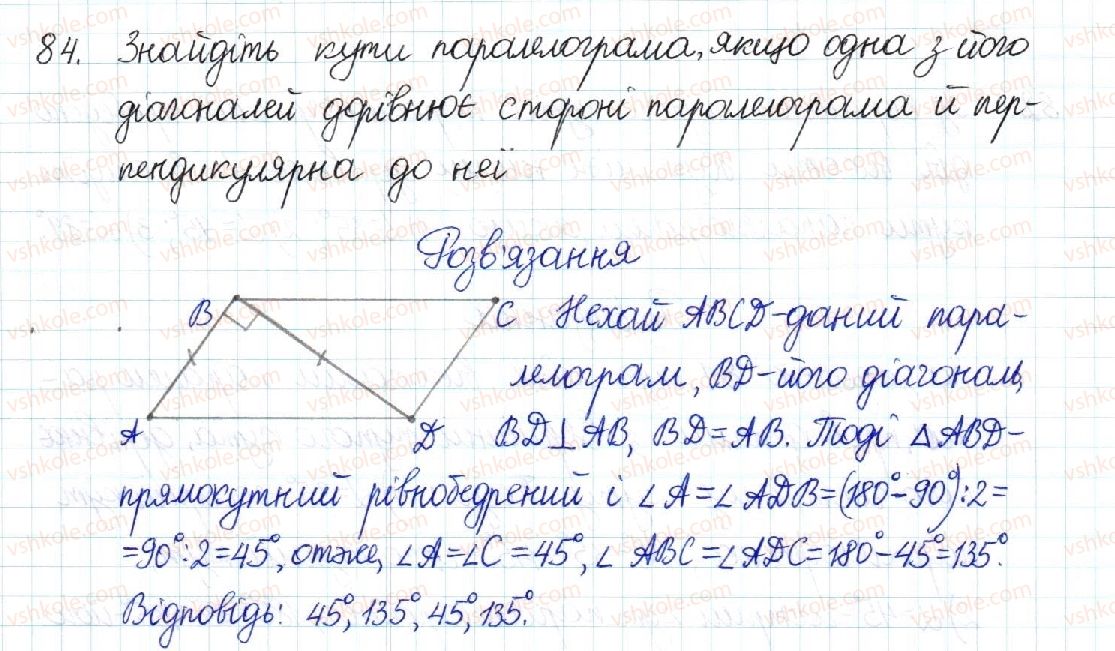 84. Знайдіть кути паралелограма, якщо одна з його
діагоналей дорівнює стороні паралелограма й пер-
пендикулярна до неї
Розв'язання
B
C
A
D
Нехай ABCD-даний пара-
лелограм, BD-його діагональ,
BD⊥AB, BD=AB. Тоді △ABD-
прямокутний рівнобедрений і ∠A=∠ADB=(180°-90°):2=
=90°:2=45°, отже, ∠A=∠C=45°, ∠ABC=∠ADC=180°-45°=135°.
Відповідь: 45°, 135°, 45°, 135°.
vshkole.com